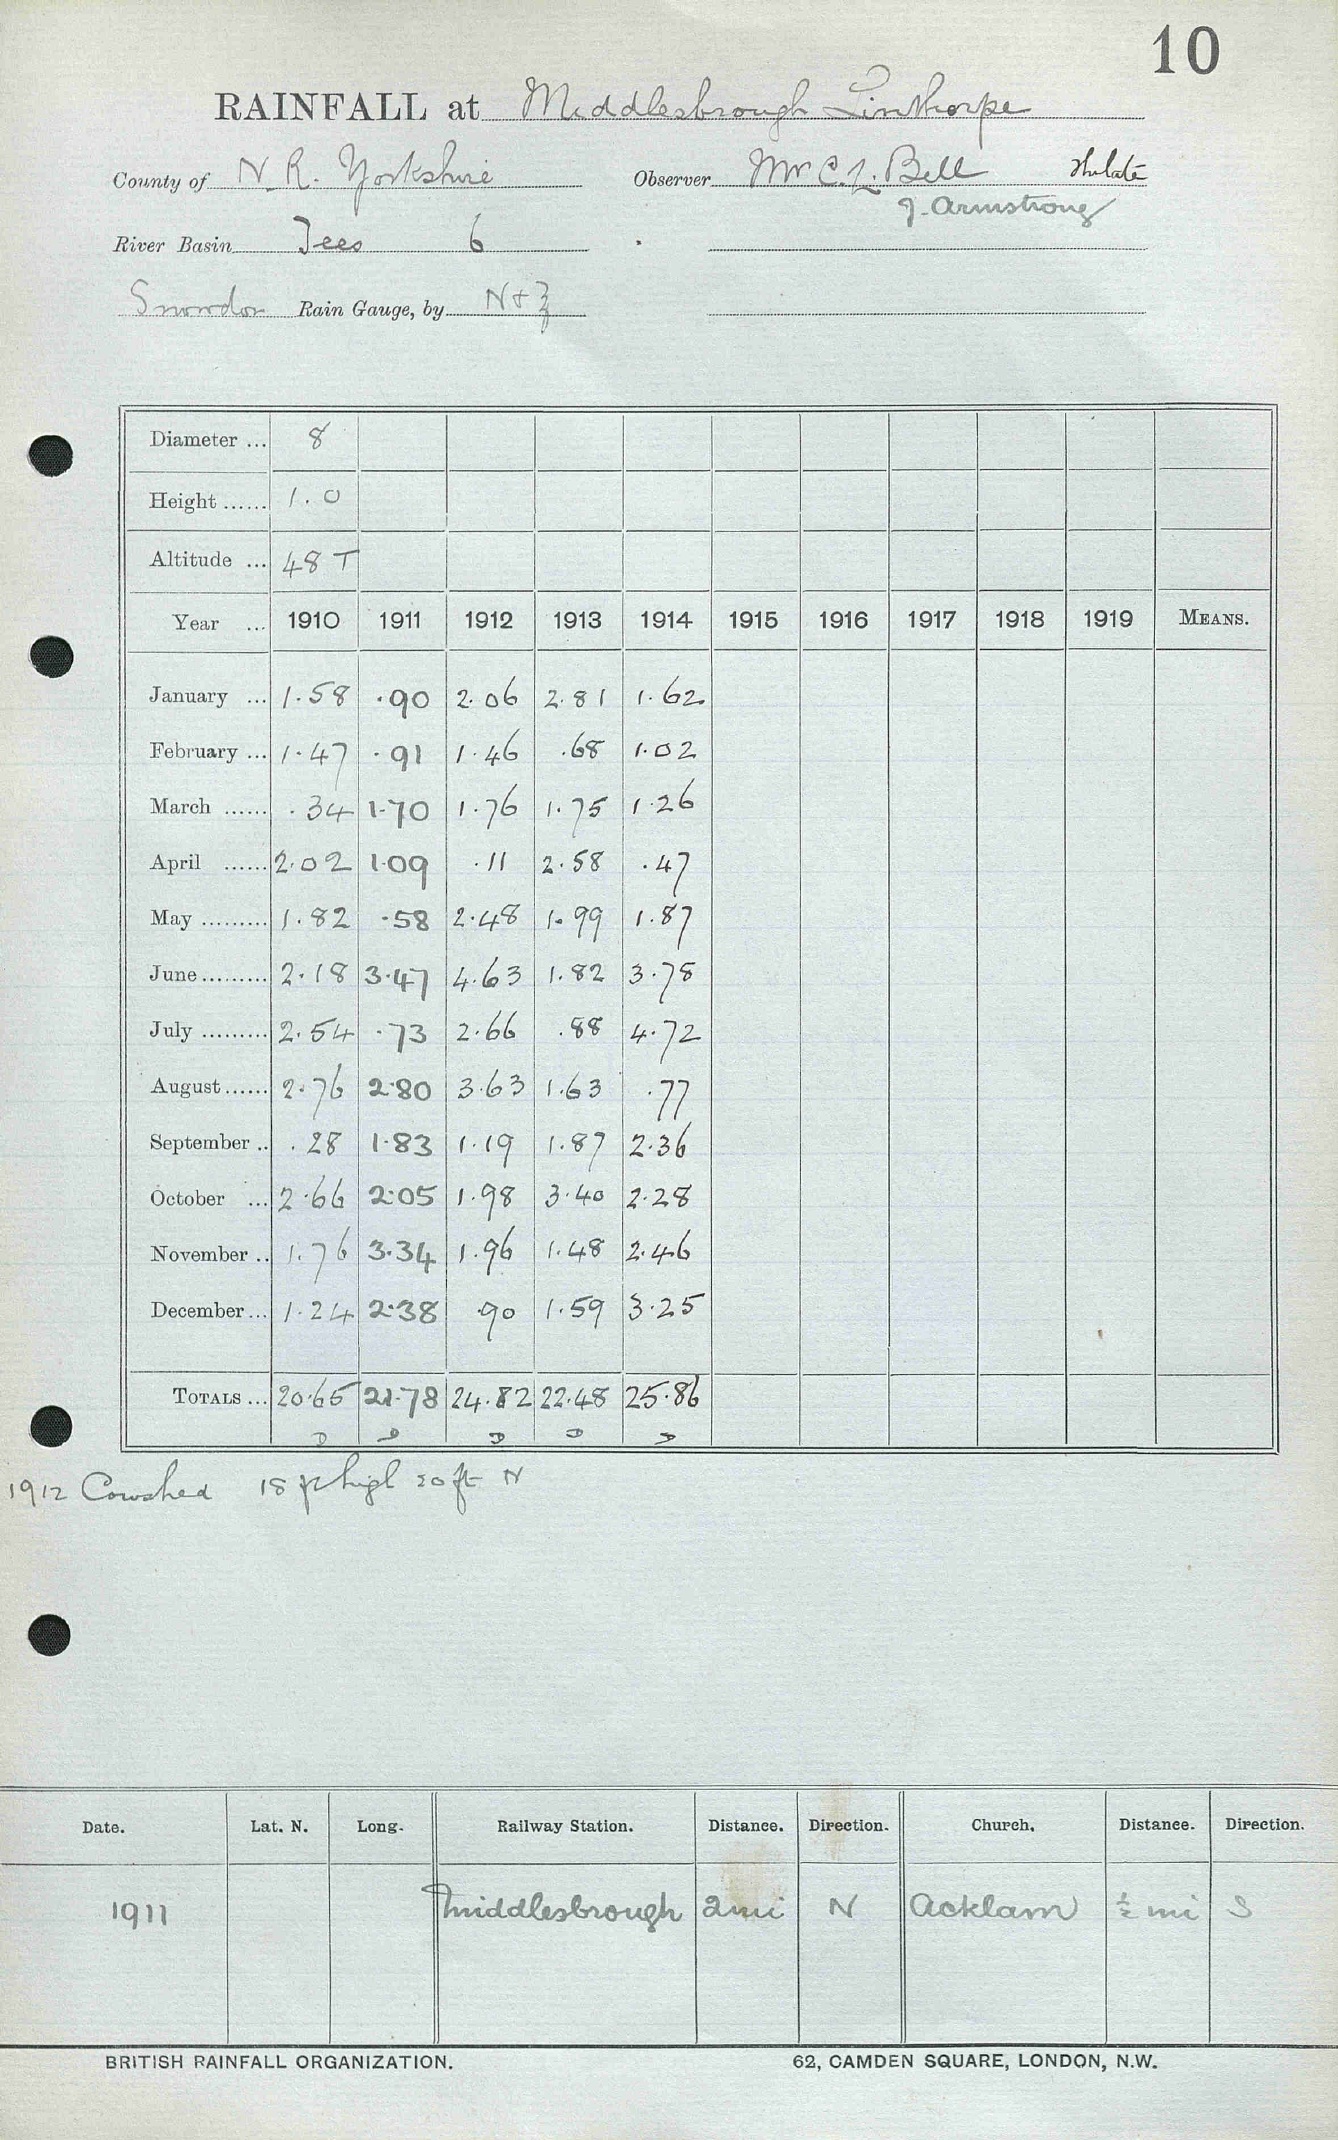 10
RAINFALL at Middlesbrough Linthorpe
County of N. R. Yorkshire Observer Mr C. L. Bell
J. Armstrong
River Basin Tees 6
Snowdon Rain Gauge, by N & Z
Diameter ... 8
Height ...... 1.0
Altitude ... 48 T
Year ... 1910 1911 1912 1913 1914 1915 1916 1917 1918 1919 MEANS.
January ... 1.58 .90 2.06 2.81 1.62
February ... 1.47 .91 1.46 .68 1.02
March ...... .34 1.70 1.76 1.75 1.26
April ...... 2.02 1.09 .11 2.58 .47
May ......... 1.82 .58 2.48 1.99 1.87
June ......... 2.18 3.47 4.63 1.82 3.78
July ......... 2.54 .73 2.66 .88 4.72
August ...... 2.76 2.80 3.63 1.63 .77
September .. .28 1.83 1.19 1.87 2.36
October ... 2.66 2.05 1.98 3.40 2.28
November .. 1.76 3.34 1.96 1.48 2.46
December ... 1.24 2.38 .90 1.59 3.25
TOTALS ... 20.65 21.78 24.82 22.48 25.86
D D D D D
1912 Cowshed 18 ft high 20 ft N
Date. Lat. N. Long. Railway Station. Distance. Direction. Church. Distance. Direction.
1911 Middlesbrough 2 mi N Acklam ½ mi S
BRITISH RAINFALL ORGANIZATION. 62, CAMDEN SQUARE, LONDON, N.W.